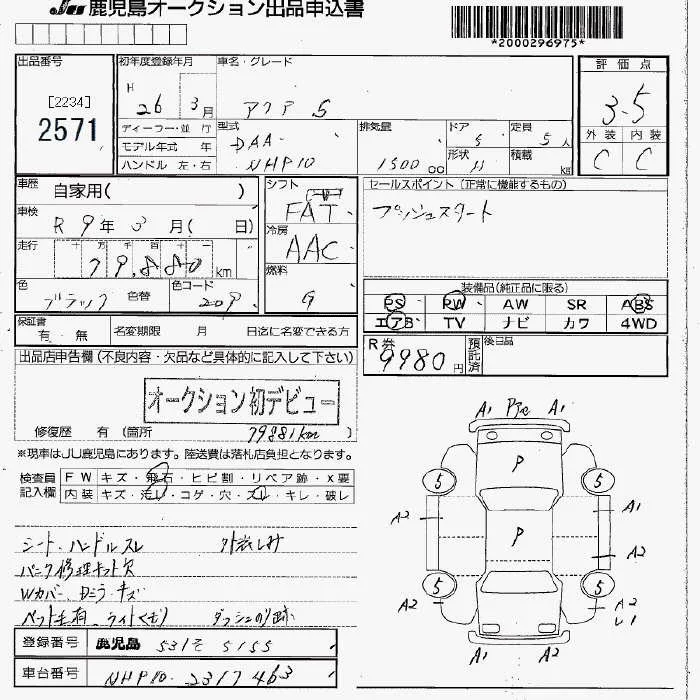 JU 鹿児島オークション出品申込書
*2000296975*
出品番号
[2234]
2571
初年度登録年月
H 26 3月
車名・グレード
アクア S
評価点
3.5
外装 内装
C C
ディーラー・並 行
モデル年式 年
ハンドル 左・右
型式
DAA-
NHP10
排気量
1500 cc
ドア
5
形状
H
定員
5人
積載
km
車歴
自家用( )
車検
R 9年 3月( 日)
走行
十 万 千 百 十 一
79,880km
色
ブラック
色替
色コード
209
シフト
FAT
冷房
AAC
燃料
G
セールスポイント(正常に機能するもの)
プッシュスタート
装備品(純正品に限る)
PS PW AW SR ABS
エアB TV ナビ カワ 4WD
保証書
有・無
名変期限 月 日迄に名変できる方
R券
9980円
預託済
後日品
出品店申告欄(不良内容・欠品など具体的に記入して下さい)
オークション初デビュー
修復歴 有(箇所
79881km
)
※現車はJU鹿児島にあります。陸送費は落札店負担となります。
検査員
記入欄
FW キズ・飛石・ヒビ割・リペア跡・X要
内装 キズ・汚レ・コゲ・穴・スレ・キレ・破レ
シート・ハンドルスレ
パンク修理キット欠
Wカバー、Dミラーキズ
ペット毛有、ライトくもり ダッシュのり跡
登録番号
鹿児島 531そ5155
車台番号
NHP10-2317463
A1 A1
P
5 5
A2 A1
P
A2
5 5
A2 A2
A1 A2